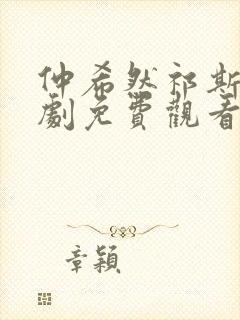 仲希然祁斯
劇免費觀看
章穎